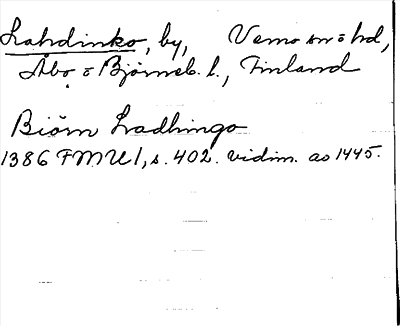 Lahdinko, by, Vemo sn o hd,
Åbo o Björneb. l., Finland
Biörn Ladhingo
1386 FMU 1, s. 402. vidim. ao 1445.